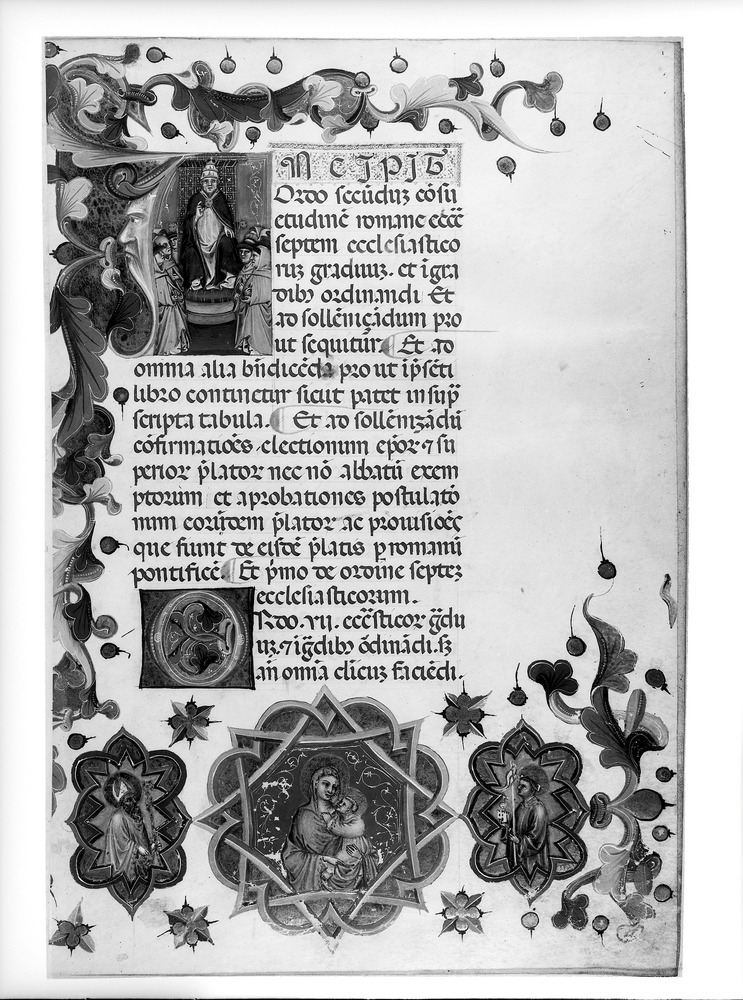 INCIPIT
Ordo secūduȝ cōsu
etudinē romane eccē
septem ecclesiastico
ruȝ graduuȝ. et īgra
dibȝ ordinandi Et
ad sollēniçādum pro
ut sequitūr. Et ad
omnia alia bn̄dicēda prout īp̄sēti
libro continetur sicut patet in sup̄
scripta tabula. Et ad sollēnizādū
cōfirmatiōēs electionum ep̄oꝝ ⁊ su
perioꝝ p̄latoꝝ nec nō abbatū exem
ptorum et aprobationes postulatō
num eorūdem p̄latoꝝ ac prouisiōēȝ
que fiunt de eisdē p̄latis ꝑ romanū
pontificē. Et p̄mo de ordine septeȝ
ecclesiasticorum.
Ordo. vii. ecc̄sticoꝝ ḡdu
uȝ. ⁊ īḡdibȝ ōdināđi. sȝ
an̄ omīa clīcuȝ faciēđi.